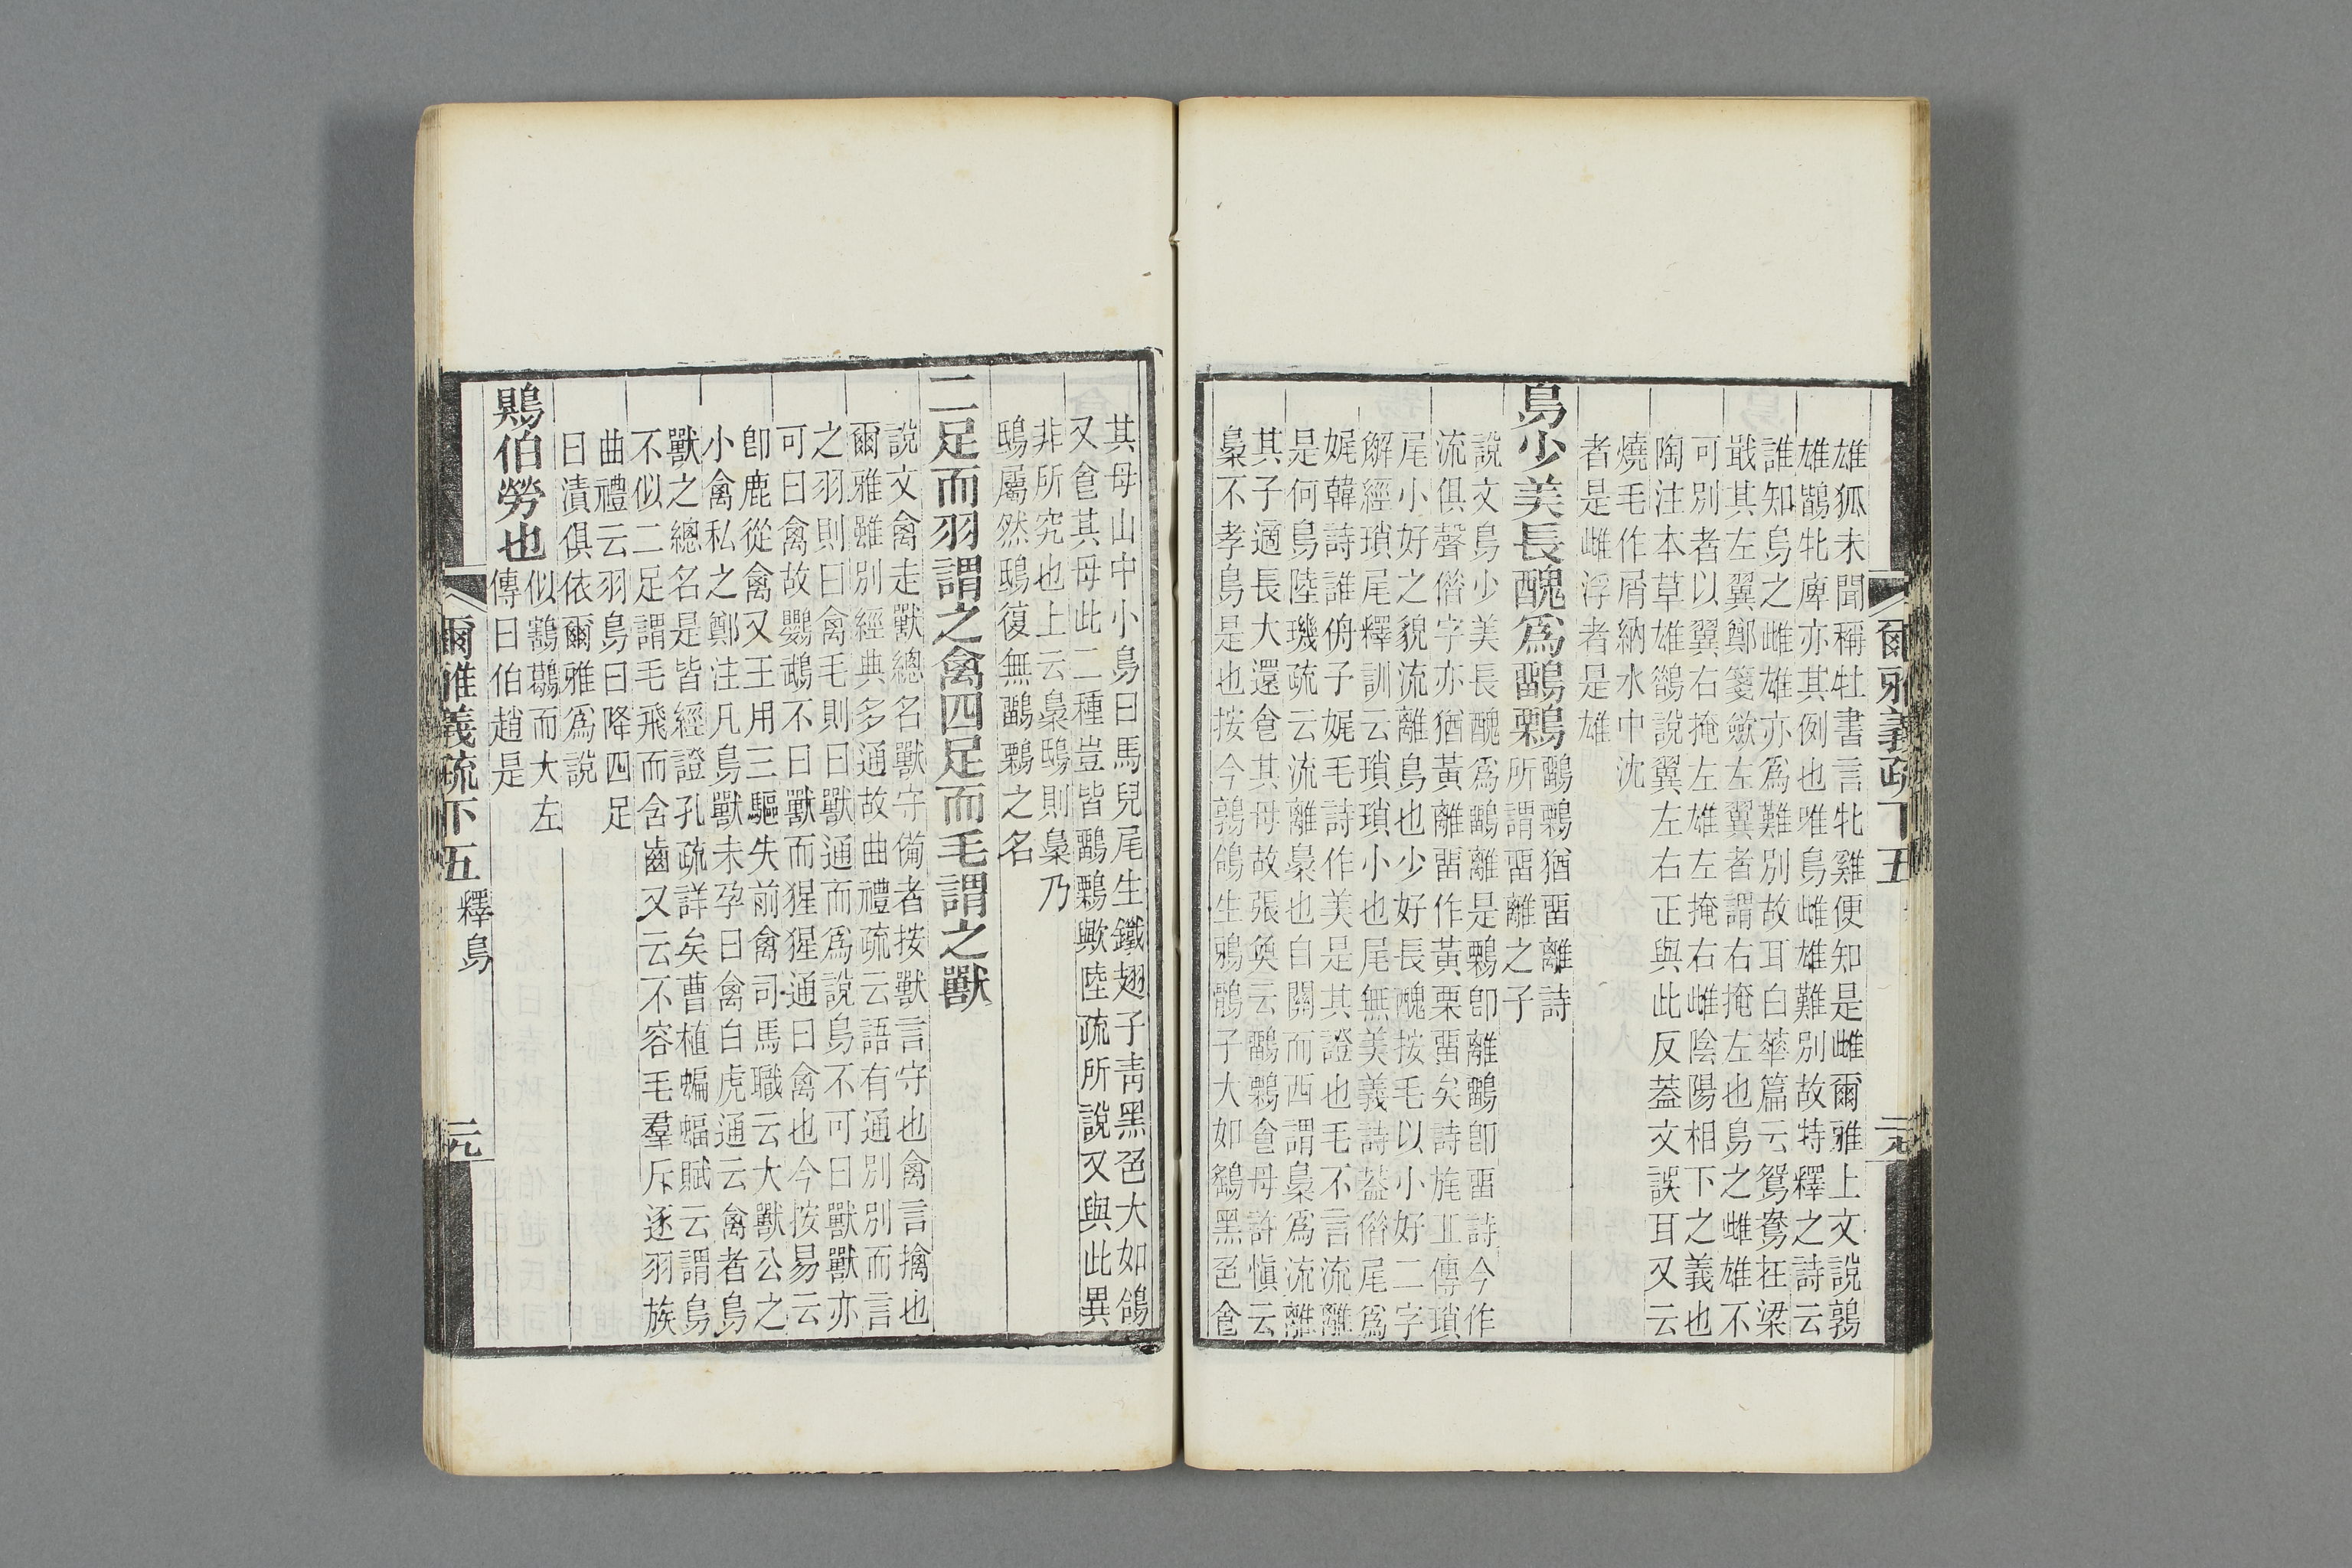 雄狐未聞稱牡書言牝雞便知是雌爾雅上文說鶉
雄鶛牝庳亦其例也唯鳥雌雄難別故特釋之詩云
誰知烏之雌雄亦爲難別故耳白華篇云鴛鴦在梁
戢其左翼鄭箋斂左翼者謂右掩左也鳥之雌雄不
可別者以翼右掩左雄左掩右雌陰陽相下之義也
陶注本草雄鵲說翼左右正與此反葢文誤耳又云
燒毛作屑納水中沈
者是雌浮者是雄
鳥少美長醜爲鶹鷅
鶹鷅猶畱離詩
所謂畱離之子
說文鳥少美長醜爲鶹離是鷅卽離鶹卽畱詩今作
流俱聲偕字亦猶黃離畱作黃栗畱矣詩旄丘傳瑣
尾小好之貌流離鳥也少好長醜按毛以小好二字
解經瑣尾釋訓云瑣瑣小也尾無美義詩葢偕尾爲
娓韓詩誰侜予娓毛詩作美是其證也毛不言流離
是何鳥陸璣疏云流離梟也自關而西謂梟爲流離
其子適長大還食其母故張奐云鶹鷅食母許愼云
梟不孝鳥是也按今鶉鴿生鴉鶻子大如鷂黑色食
其母山中小鳥曰馬兒尾生鐵翅子青黑色大如鴿
又食其母此二種豈皆鶹鷅歟陸疏所說又與此異
非所究也上云梟鴟則梟乃
鴟屬然鴟復無鶹鷅之名
二足而羽謂之禽四足而毛謂之獸
說文禽走獸總名獸守備者按獸言守也禽言擒也
爾雅雖別經典多通故曲禮疏云語有通別別而言
之羽則曰禽毛則曰獸通而爲說鳥不可曰獸獸亦
可曰禽故鸚鵡不曰獸而猩猩通曰禽也今按易云
卽鹿從禽又王用三驅失前禽司馬職云大獸公之
小禽私之鄭注凡鳥獸未孕曰禽白虎通云禽者鳥
獸之總名是皆經證孔疏詳矣曹植蝙蝠賦云謂鳥
不似二足謂毛飛而含齒又云不容毛羣斥逐羽族
曲禮云羽鳥曰降四足
曰漬俱依爾雅爲說
鶪伯勞也
似鶷鶡而大左
傳曰伯趙是
爾雅義疏下五
釋鳥